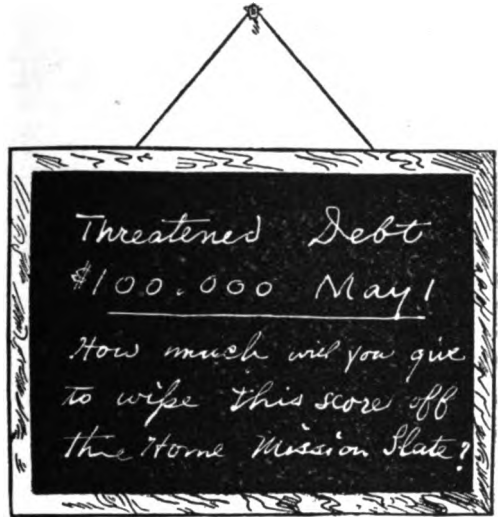 Threatened Debt
$100.000 May 1
How much will you give
to wipe this score off
the Home Mission Slate?